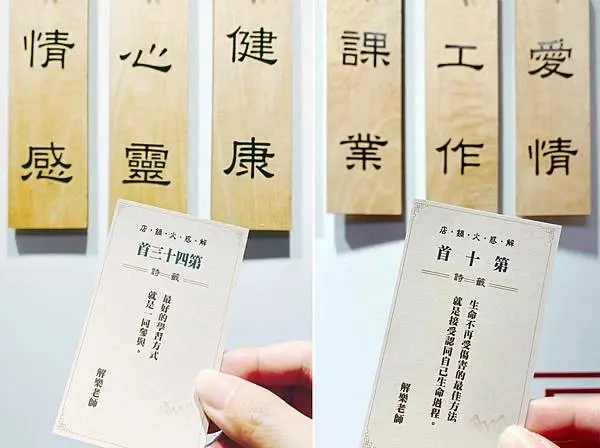 健康
心靈
情感
解・惑・火・鍋・店
第四十三首
籤詩
最好的學習方式
就是一同參與。
解樂老師
愛情
工作
課業
解・惑・火・鍋・店
第十首
籤詩
生命不再受傷害的最佳方法
就是接受認同自己生命過程。
解樂老師